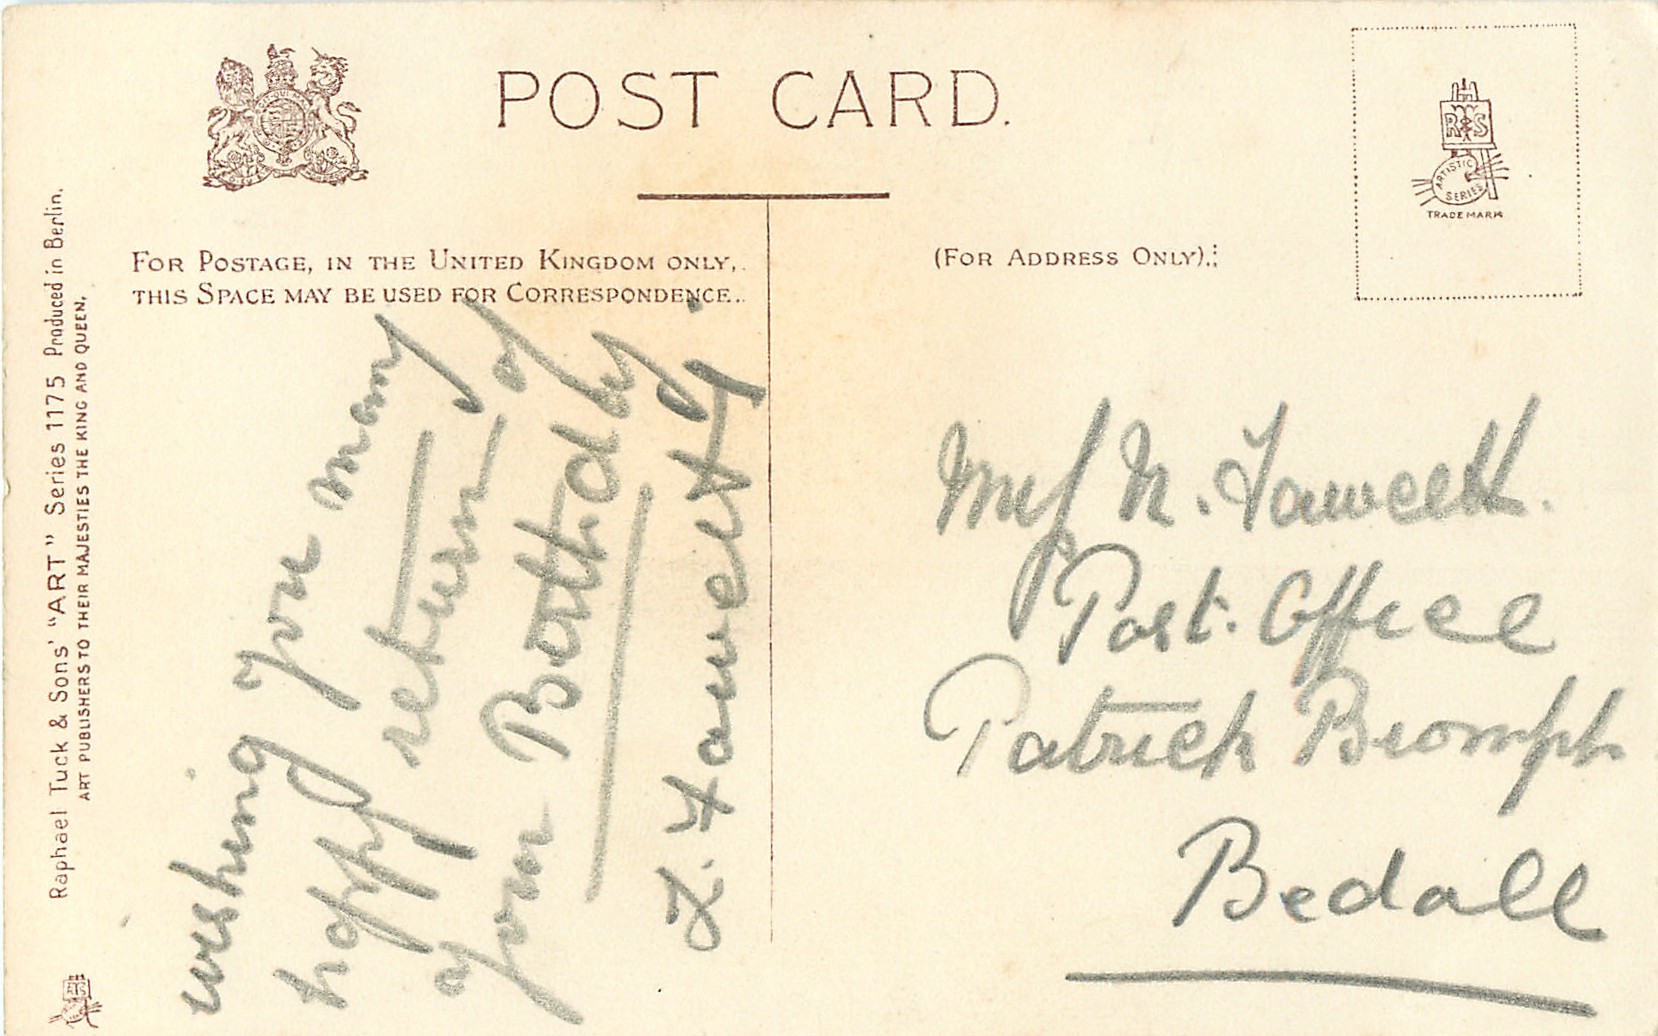 POST CARD.
FOR POSTAGE, IN THE UNITED KINGDOM ONLY,
THIS SPACE MAY BE USED FOR CORRESPONDENCE.
(FOR ADDRESS ONLY).
R & S
ARTISTIC
SERIES
TRADE MARK
Raphael Tuck & Sons' "ART" Series 1175 Produced in Berlin.
ART PUBLISHERS TO THEIR MAJESTIES THE KING AND QUEEN.
wishing you many
happy return of
your Borthday
L. Fawcett
Miss N. Fawcett.
Post. Office
Patrick Brompth
Bedall